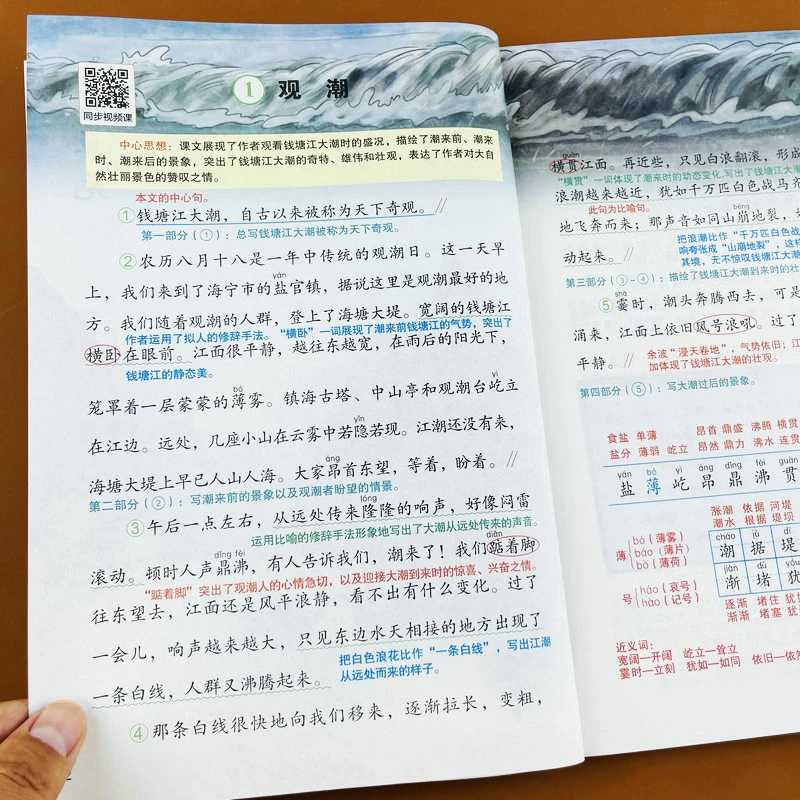 同步视频课
1 观 潮
中心思想：课文展现了作者观看钱塘江大潮时的盛况，描绘了潮来前、潮来
时、潮来后的景象，突出了钱塘江大潮的奇特、雄伟和壮观，表达了作者对大自
然壮丽景色的赞叹之情。
本文的中心句。
①钱塘江大潮，自古以来被称为天下奇观。//
第一部分（①）：总写钱塘江大潮被称为天下奇观。
②农历八月十八是一年中传统的观潮日。这一天早
yán
上，我们来到了海宁市的盐官镇，据说这里是观潮最好的地
方。我们随着观潮的人群，登上了海塘大堤。宽阔的钱塘江
作者运用了拟人的修辞手法。“横卧”一词展现了潮来前钱塘江的气势，突出了
横卧在眼前。江面很平静，越往东越宽，在雨后的阳光下，
钱塘江的静态美。
bó yì
笼罩着一层蒙蒙的薄雾。镇海古塔、中山亭和观潮台屹立
yǐn
在江边。远处，几座小山在云雾中若隐若现。江潮还没有来，
áng
海塘大堤上早已人山人海。大家昂首东望，等着，盼着。//
第二部分（②）：写潮来前的景象以及观潮者盼望的情景。
lóng
③午后一点左右，从远处传来隆隆的响声，好像闷雷
运用比喻的修辞手法形象地写出了大潮从远处传来的声音。
dǐng fèi diǎn
滚动。顿时人声鼎沸，有人告诉我们，潮来了！我们踮着脚
“踮着脚”突出了观潮人的心情急切，以及迎接大潮到来时的惊喜、兴奋之情。
往东望去，江面还是风平浪静，看不出有什么变化。过了
一会儿，响声越来越大，只见东边水天相接的地方出现了
把白色浪花比作“一条白线”，写出江潮
一条白线，人群又沸腾起来。
从远处而来的样子。
④那条白线很快地向我们移来，逐渐拉长，变粗，
guàn
横贯江面。再近些，只见白浪翻滚，形成
“横贯”一词体现了潮来时的动态变化，写出了钱塘江大
浪潮越来越近，犹如千万匹白色战马齐
此句为比喻句。
bēng
地飞奔而来；那声音如同山崩地裂，
把浪潮比作“千万匹白色战
动起来。//
响夸张成“山崩地裂”，这样
其境，无不惊叹钱塘江大潮
第三部分（③－④）：描绘了钱塘江大潮到来时的壮
shà
⑤霎时，潮头奔腾西去，可是
涌来，江面上依旧风号浪吼。过了
平静。//
余波“漫天卷地”，气势依旧；江
加体现了钱塘江大潮的壮观。
第四部分（⑤）：写大潮过后的景象。
食盐 单薄 昂首 鼎盛 沸腾 横贯
盐分 薄弱 屹立 昂然 鼎力 沸水 连贯
yán bó yì áng dǐng fèi guàn
盐 薄 屹 昂 鼎 沸 贯
涨潮 依据 河堤
潮水 根据 堤坝
薄 bó（薄雾） báo（薄片） bò（薄荷）
cháo jù dī
潮 据 堤
jiàn dǔ yóu
渐 堵 犹
号 háo（哀号） hào（记号）
逐渐 堵住 犹如
渐渐 堵塞 犹
近义词：
宽阔—开阔 屹立—耸立
霎时—立刻 犹如—如同 依旧—依然